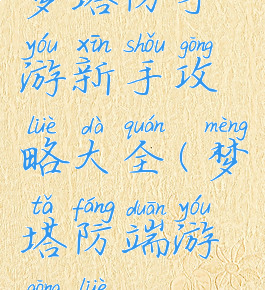 梦塔防手
yóu xīn shǒu gōng
游新手攻
lüè dà quán mèng
略大全(梦
tǎ fáng duān yóu
塔防端游
gōng lüè